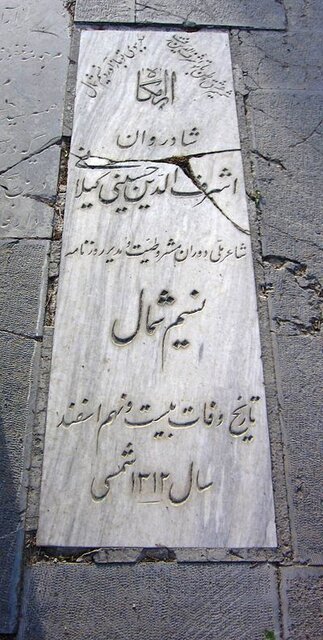 آرامگاه
شادروان
اشرف الدین حسینی گیلانی
شاعر ملی دوران مشروطیت و مدیر روزنامه
نسیم شمال
تاریخ وفات بیست و نهم اسفند
سال ۱۳۱۲ شمسی